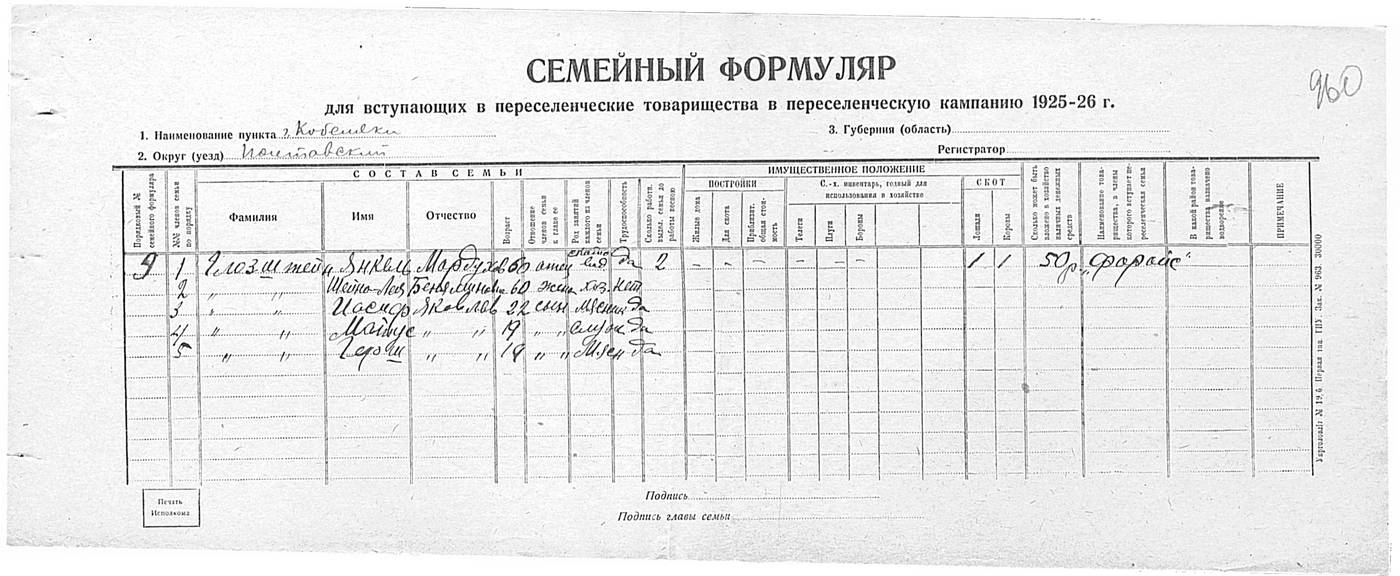 960
СЕМЕЙНЫЙ ФОРМУЛЯР
для вступающих в переселенческие товарищества в переселенческую кампанию 1925-26 г.
1. Наименование пункта г. Кобеляки
3. Губерния (область)
2. Округ (уезд) Полтавский
Регистратор
СОСТАВ СЕМЬИ
ИМУЩЕСТВЕННОЕ ПОЛОЖЕНИЕ
Порядковый № семейного формуляра
№№ членов семьи по порядку
Фамилия
Имя
Отчество
Возраст
Отношение членов семьи к главе ее
Род занятий каждого из членов семьи
Трудоспособность
Сколько работн. высыл. семья до работы весною
ПОСТРОЙКИ
Жилые дома
Для скота
Приблизит. общая стоимость
С.-х. инвентарь, годный для использования в хозяйстве
Телеги
Плуги
Бороны
СКОТ
Лошади
Коровы
Сколько может быть вложено в хозяйство наличных денежных средств
Наименование товарищества, в члены которого вступает переселенческая семья
В какой район товарищества назначено водворение
ПРИМЕЧАНИЕ
9 1 Глозштейн Янкель Мордухов 60 отец да 2 – – – – – – 1 1 50р. „Форойс“
2 „ „ Шейна-Лея 60 жена хоз. нет
3 „ „ Иосиф Яковлев 22 сын да
4 „ „ „ „ 19 „ „ да
5 „ „ Герш „ „ „ „ да
Печать Исполкома
Подпись
Подпись главы семьи
Укрголовліт № 19.6 Первая тип. ГПУ. Зак. № 963 30000